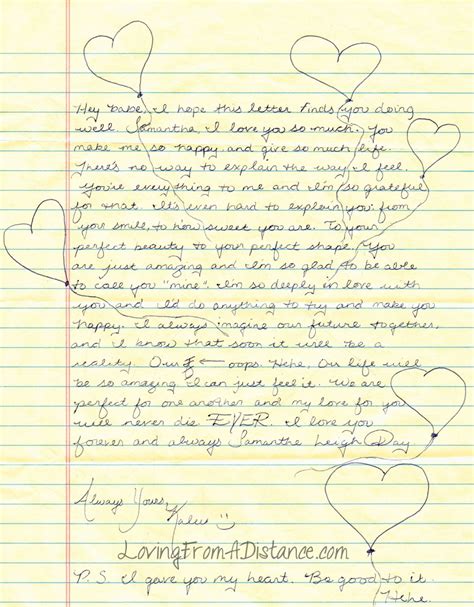 Hey babe, I hope this letter finds you doing
well. Samantha, I love you so much. You
make me so happy and give so much life.
There's no way to explain the way I feel.
You're everything to me and I'm so grateful
for that. It's even hard to explain you: from
your smile, to how sweet you are. To your
perfect beauty to your perfect shape. You
are just amazing and I'm so glad to be able
to call you "mine". I'm so deeply in love with
you and I'd do anything to try and make you
happy. I always imagine our future together,
and I know that soon it will be a
reality. Our ← oops. Hehe, Our life will
be so amazing I can just feel it. We are
perfect for one another and my love for you
will never die EVER. I love you
forever and always Samantha Leigh Day
Always Yours,
Kaleu
LovingFromADistance.com
P.S I gave you my heart. Be good to it.
Hehe.